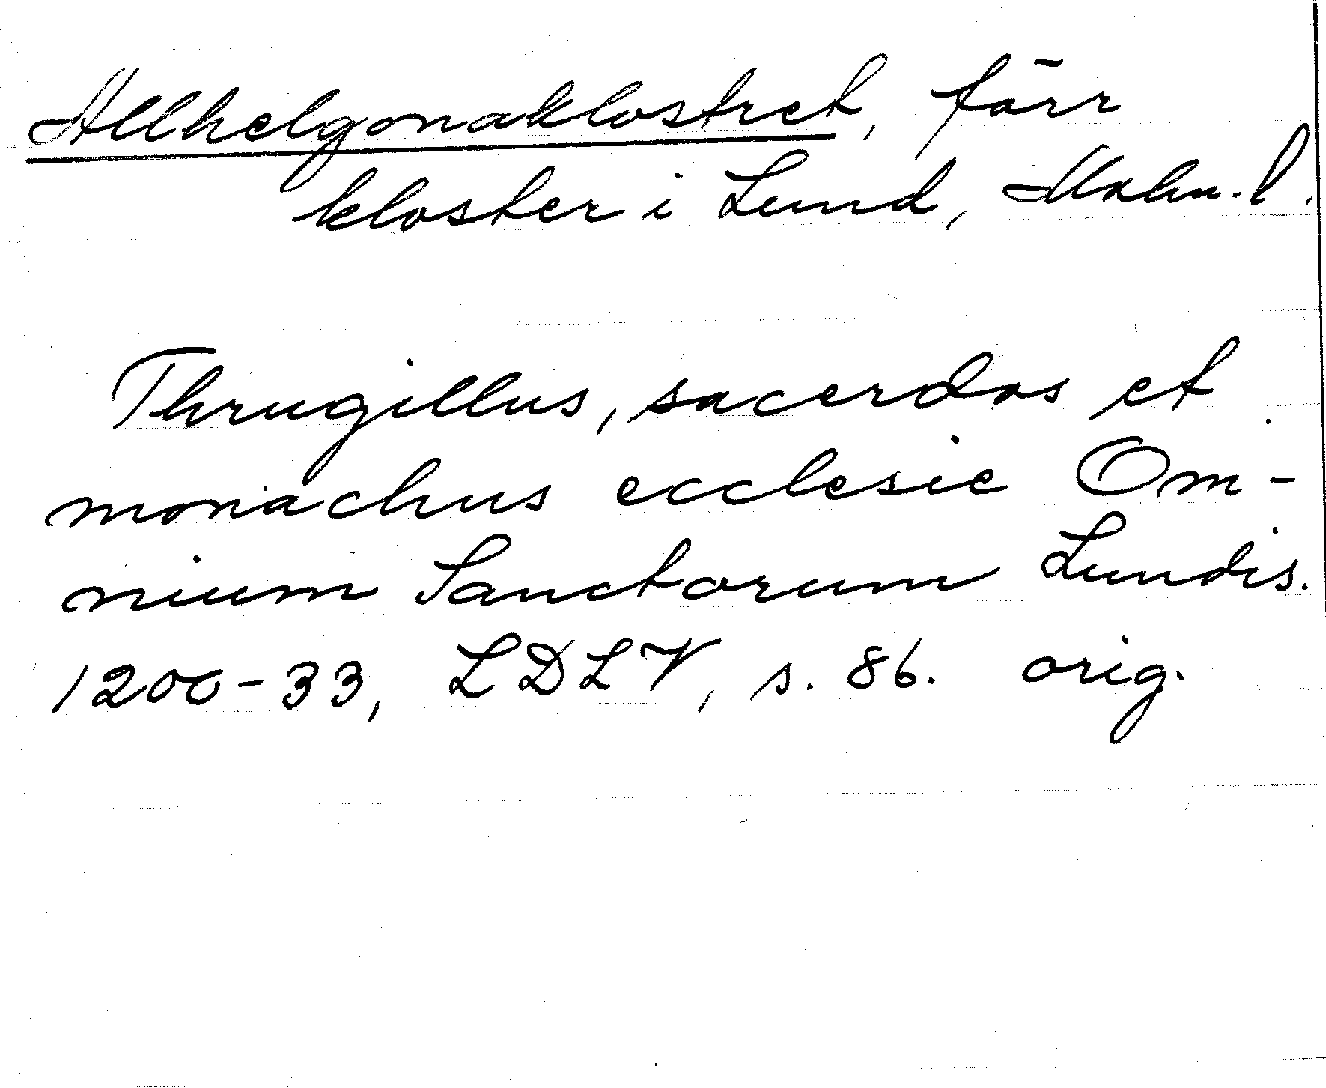 Allhelgonaklostret, förr
kloster i Lund, Malm. l.
Thrugillus, sacerdos et
monachus ecclesie Om-
nium Sanctorum Lundis.
1200-33, LDLV, s. 86. orig.